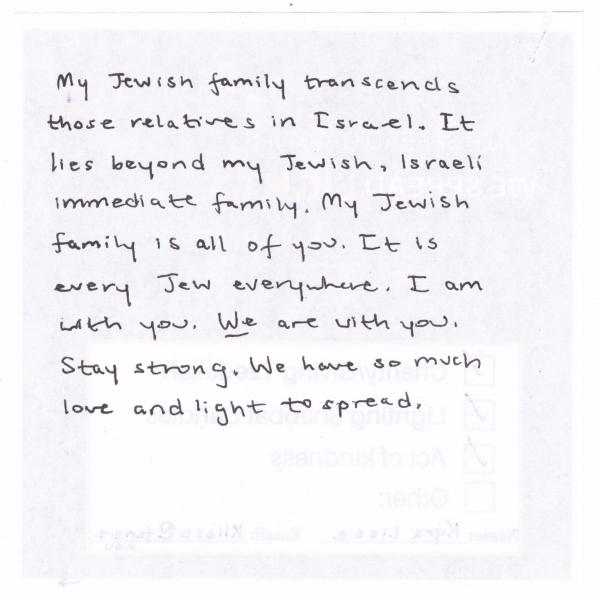 My Jewish family transcends
those relatives in Israel. It
lies beyond my Jewish, Israeli
immediate family. My Jewish
family is all of you. It is
every Jew everywhere. I am
with you. We are with you.
Stay strong. We have so much
love and light to spread.
Charity/Giving
Lighting Shabbat Candles
Act of kindness
Other:
Name:
Email: